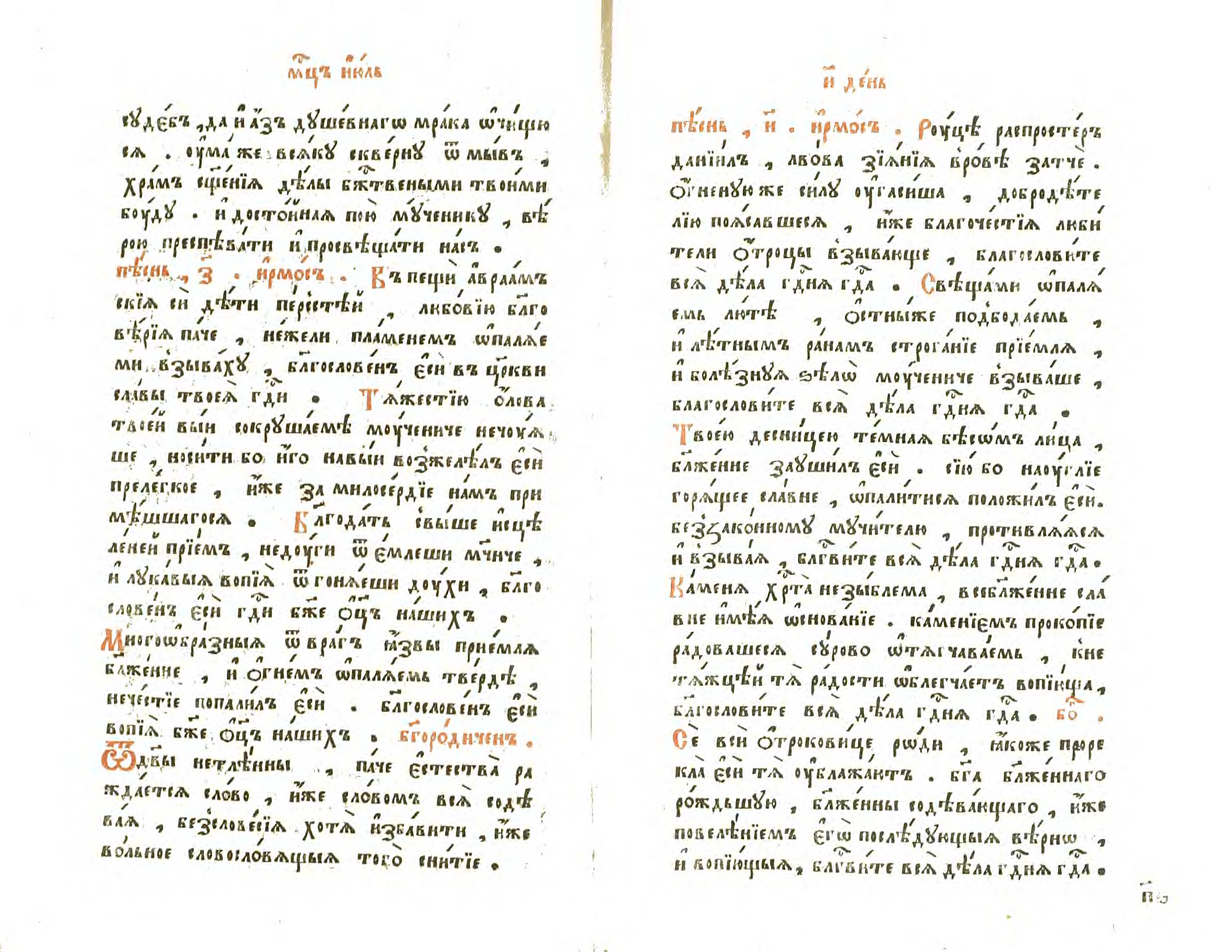 мц҃ъ і҆ю́ль
су́дебъ , да и҆ а҆́зъ дꙋше́внагѡ мра́ка ѡ҆чи́щю
сѧ . оу҆ма́ же всѧ́кꙋ скве́рнꙋ ѿ мы́въ ,
хра́мъ сщ҃е́нїѧ дѣ́лы бж҃твеными твои́ми
бо́уд꙼у . и҆ досто́йнаѧ пою̀ мч꙼е́никꙋ , вѣ́
рою преспѣва́ти и҆ просвѣща́ти на́съ .
пѣ́снь , з҃ . і҆рмо́съ . Въ пещѝ а҆враа́мъ
скїѧ сѝ дѣ́ти пе́рсстѣй , любо́вїю бл҃го
вѣ́рїѧ па́че , не́жели пла́менемъ ѡ҆палѧ́е
ми , взыва́хꙋ , бл҃гослове́нъ є҆сѝ въ цр҃кви
сла́вы твоеѧ̀ гд҃и . Тѧ́жестїю ѻ҆́лова
твое́й вы́и сокрꙋша́емѣ мо́учениче нечо́уѧ
ше , носи́ти бо и҆́го на вы́и возжелѣ́лъ є҆сѝ
преле́гкое , и҆́же за милосе́рдїе на́мъ при
мѣ́шшагосѧ . Благода́ть свы́ше и҆сцѣ
ле́ней прїе́мъ , недо́уги ѿ є҆́млеши мч҃ниче ,
и҆ лꙋка́выѧ вопїѧ̀ ѿ гонѧ́еши до́ухи , бл҃го
слове́нъ є҆сѝ гд҃и бж҃е ѻ҆ц҃ъ на́шихъ .
Многоѡбра́зныѧ ѿ вра́гъ ꙗ҆́звы прие́млѧ
бл҃же́нне , и҆ ѻ҆гне́мъ ѡ҆палѧ́емь тве́рдѣ ,
нече́стїе попали́лъ є҆сѝ . бл҃гослове́нъ є҆сѝ
вопїѧ̀ бж҃е ѻ҆ц҃ъ на́шихъ . бг҃оро́диченъ .
Ѿ дв҃ы нетлѣ́нны , па́че є҆стества̀ ра
жда́етсѧ сло́во , и҆́же сло́вомъ всѧ̀ содѣ́
ваѧ , безслове́сїѧ хотѧ̀ и҆зба́вити , и҆́же
во́льное словосло́вѧщыѧ того̀ сни́тїе .
и҃ де́нь
пѣ́снь , и҃ . і҆рмо́съ . Ро́уцѣ распросте́ръ
данїи́лъ , льво́ва зїѧ́нїѧ в̾ро́вѣ затчѐ .
ѻ҆́гненꙋю же си́лꙋ оу҆гаси́ша , добродѣ́те
лїю поѧ́савшесѧ , и҆́же благоче́стїѧ люби́
тели ѻ҆́троцы взыва́юще , благослови́те
всѧ̀ дѣ́ла гд҃нѧ гд҃а . Свѣща́ми ѡ҆палѧ́
емь лю́тѣ , ѻ҆́стныже подбода́емь ,
и҆ лѣ́тнымъ ра́намъ строга́нїе прїе́млѧ ,
и҆ болѣ́знꙋѧ ѕѣлѡ̀ мо́учениче взыва́ше ,
благослови́те всѧ̀ дѣ́ла гд҃нѧ гд҃а .
Твое́ю десни́цею те́мнаѧ бѣ́сѡмъ ли́ца ,
бл҃же́нне заꙋши́лъ є҆сѝ . сїю́ бо на о́углїе
горѧ́щее сла́вне , ѡ҆пали́тисѧ положи́лъ є҆сѝ.
беззако́нномꙋ мꙋчи́телю , противлѧ́ѧсѧ
и҆ взыва́ѧ , бл҃гви́те всѧ̀ дѣ́ла гд҃нѧ гд҃а .
Ка́менѧ хр҃та̀ незы́блема , всебл҃же́нне сла́
вне и҆мѣ́ѧ ѡ҆снова́нїе . ка́менїемъ проко́пїе
ра́довашесѧ сꙋ́рово ѡ҆тѧгчава́емь , к̾не
тѧ́жцѣй тѧ̀ ра́дости ѡ҆блегча́етъ вопїю́ща ,
бл҃гослови́те всѧ̀ дѣ́ла гд҃нѧ гд҃а . бо҃ .
Се́ всѝ ѻ҆трокови́це рѡ́ди , ꙗ҆́коже проре
кла̀ є҆сѝ тѧ̀ оу҆блажа́ютъ . бг҃а бл҃же́ннаго
ро́ждьшꙋю , бл҃же́нны содѣва́ющаго , и҆́же
повелѣ́нїемъ є҆гѡ̀ послѣ́дꙋющыѧ вѣ́рнѡ ,
и҆ вопїю́щыѧ , бл҃гви́те всѧ̀ дѣ́ла гд҃нѧ гд҃а .